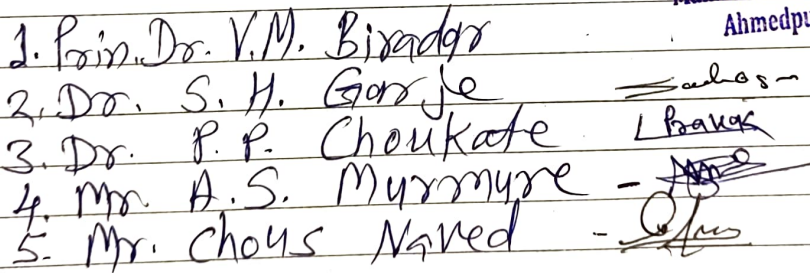 Ahmedpu
1. Prin. Dr. V.M. Biradar
2. Dr. S. H. Garje
3. Dr. P. P. Choukate
4. Mr. A.S. Murmure -
5. Mr. Chous Naved -